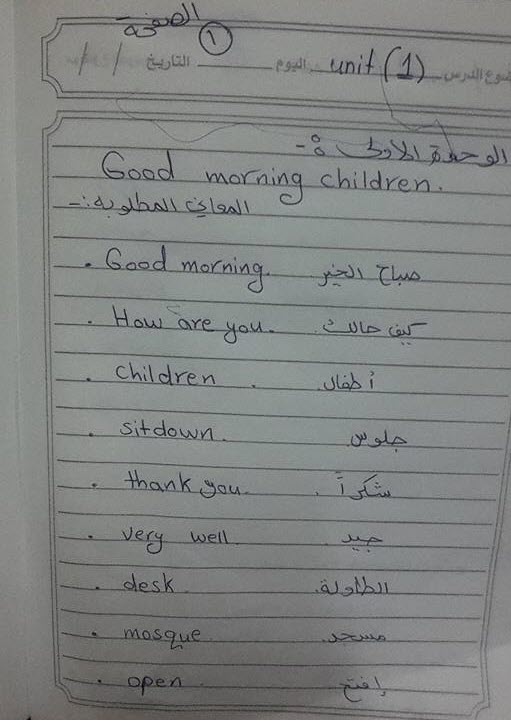 الصفحة
١
موضوع الدرس unit (1) اليوم التاريخ / /
الوحدة الاولى :-
Good morning children.
المعاني المطلوبة :-
. Good morning. صباح الخير
. How are you. كيف حالك
. children . أطفال
. sitdown. جلوس
. thank you. شكراً
. very well. جيد
. desk. الطاولة
. mosque. مسجد
. open. إفتح